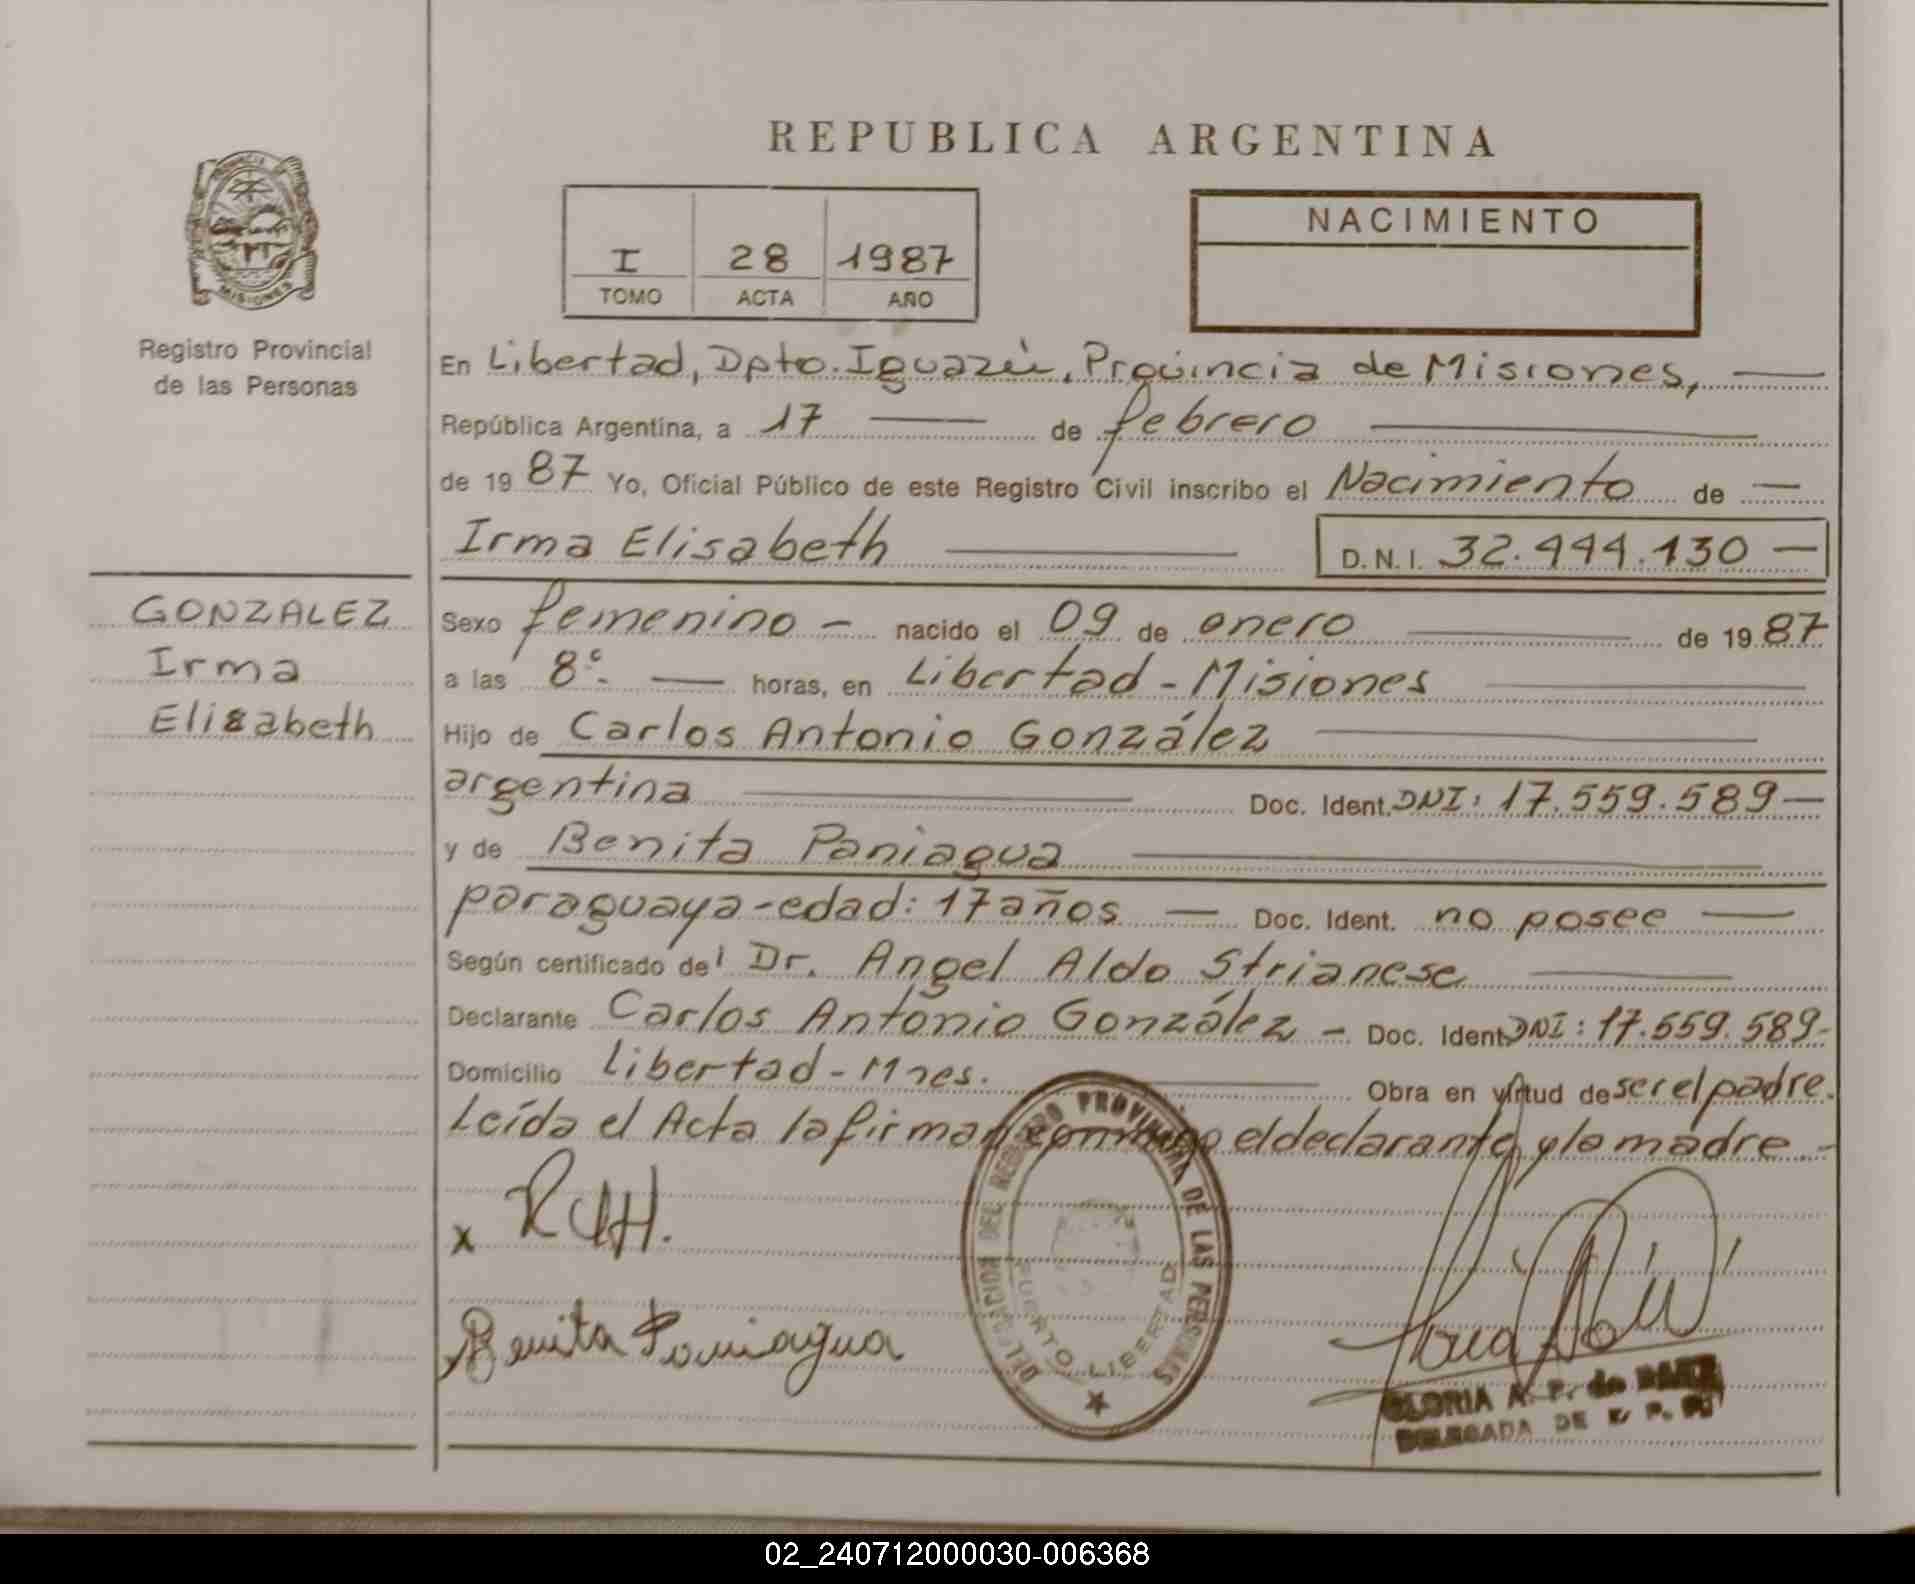 REPUBLICA ARGENTINA
PROVINCIA
MISIONES
Registro Provincial
de las Personas
I 28 1987
TOMO ACTA AÑO
NACIMIENTO
En Libertad, Dpto. Iguazú, Provincia de Misiones,
República Argentina, a 17 de febrero
de 1987 Yo, Oficial Público de este Registro Civil inscribo el Nacimiento de
Irma Elisabeth D.N.I. 32.444.130
GONZALEZ
Irma
Elisabeth
Sexo femenino - nacido el 09 de enero de 1987
a las 8 horas, en Libertad - Misiones
Hijo de Carlos Antonio González
argentina Doc. Ident. DNI: 17.559.589
y de Benita Paniagua
paraguaya - edad: 17 años - Doc. Ident. no posee
Según certificado del Dr. Angel Aldo Strianese
Declarante Carlos Antonio González - Doc. Ident. DNI: 17.559.589-
Domicilio Libertad - Mnes. Obra en virtud de ser el padre.
Leída el Acta la firman conmigo el declarante y la madre.-
x
Benita Paniagua
DELEGACION DEL REGISTRO PROVINCIAL DE LAS PERSONAS
PUERTO LIBERTAD
GLORIA A. P. de BAEZ
DELEGADA DE R. P. P.
02_240712000030-006368